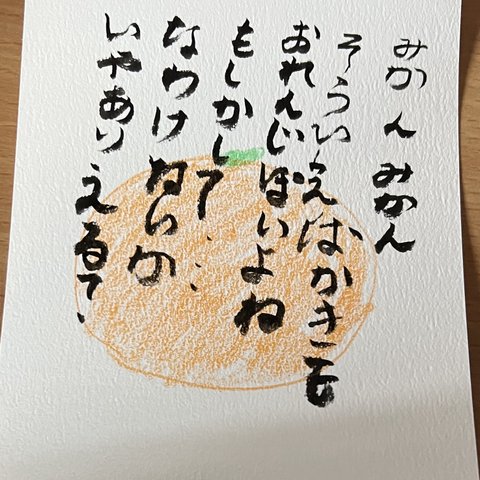 みかんみかん
そういえばかきも
おれんじぽいよね
もしかして...
なわけねいか
いやありえるて、